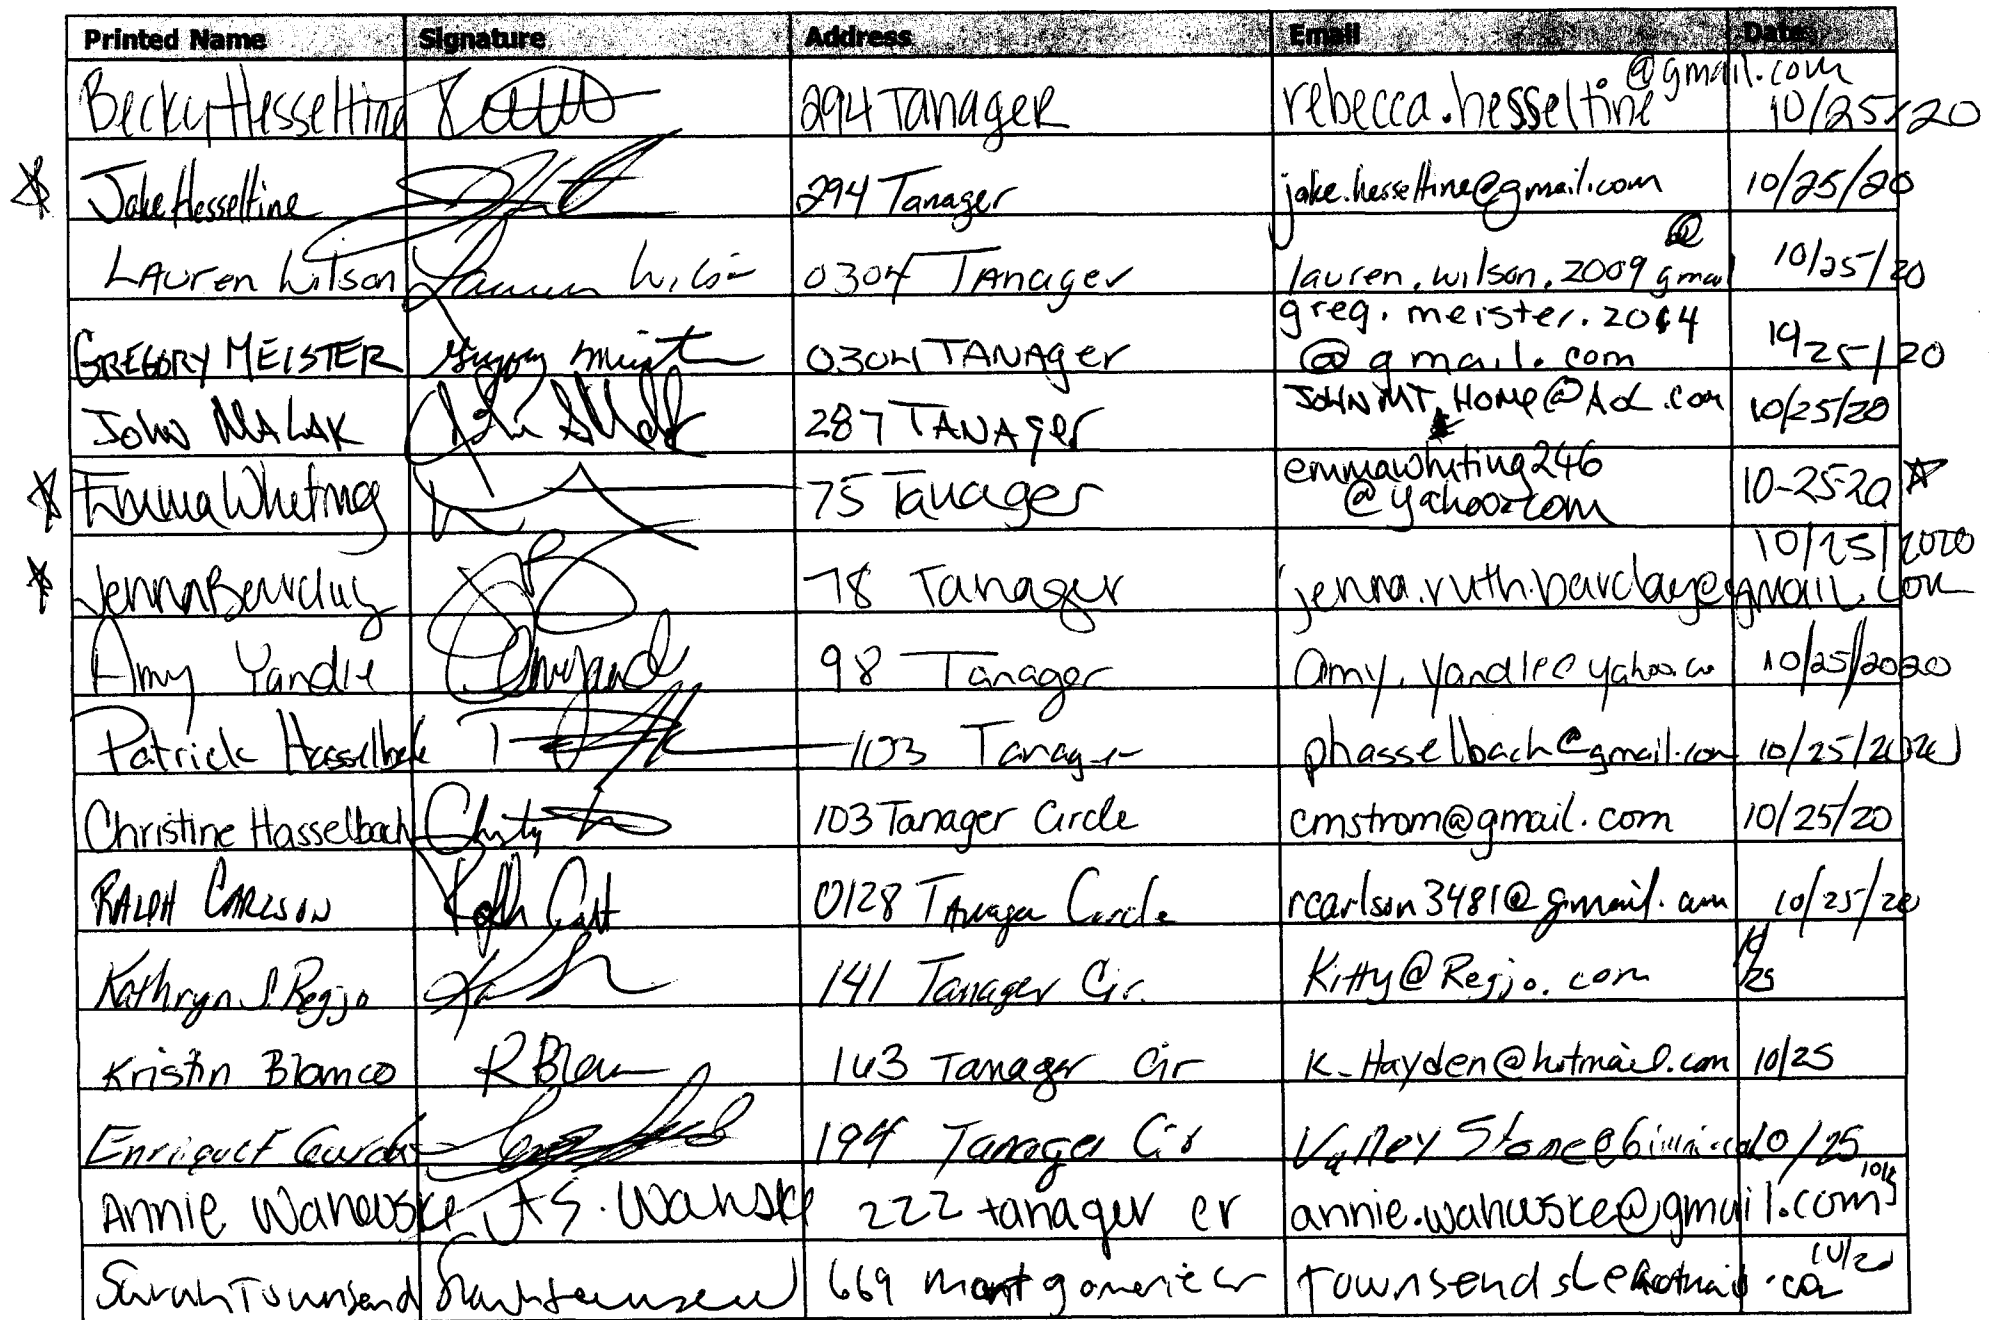 Printed Name Signature Address Email Date
Becky Hesseltine 294 Tanager rebecca.hesseltine@gmail.com 10/25/20
Jake Hesseltine 294 Tanager jake.hesseltine@gmail.com 10/25/20
LAuren Wilson Lauren Wilson 0304 TAnager lauren.wilson.2009@gmail 10/25/20
GREGORY MEISTER 0304 TANAger greg.meister.2014@gmail.com 10/25/20
JOHN MALAK 287 TANAger JOHNMT HOME@AOL.com 10/25/20
Emma Whiting 75 Tanager emmawhiting246@yahoo.com 10-25-20
Jenna Barclay 78 Tanager jenna.ruth.barclay@gmail.com 10/25/2020
Amy Yandle 98 Tanager amy.yandle@yahoo.co 10/25/2020
Patrick Hasselbach 103 Tanager phasselbach@gmail.com 10/25/2020
Christine Hasselbach 103 Tanager Circle cmstrom@gmail.com 10/25/20
RALPH CARLSON 0128 TAnager Circle rcarlson3481@gmail.com 10/25/20
Kathryn J. Regjo 141 Tanager Cir. Kitty@Regjo.com 10/25
Kristin Blanco K Blan 163 Tanager Cir K_Hayden@hotmail.com 10/25
194 Tanager Cir 10/25
Annie Wanowske 222 tanager cr
Sarah Townsend Sarah Townsend 669 montgomerie cr